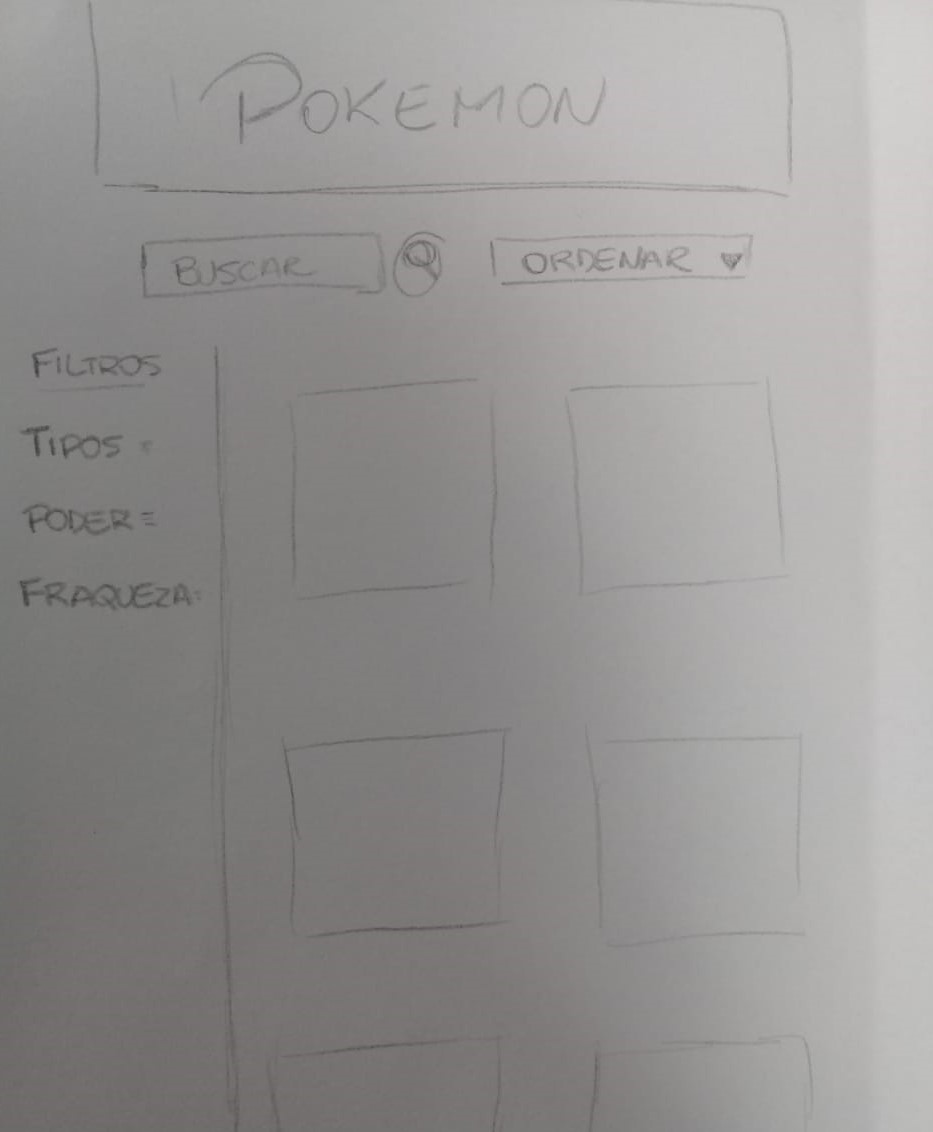 POKEMON
BUSCAR
ORDENAR
FILTROS
TIPOS =
PODER =
FRAQUEZA: